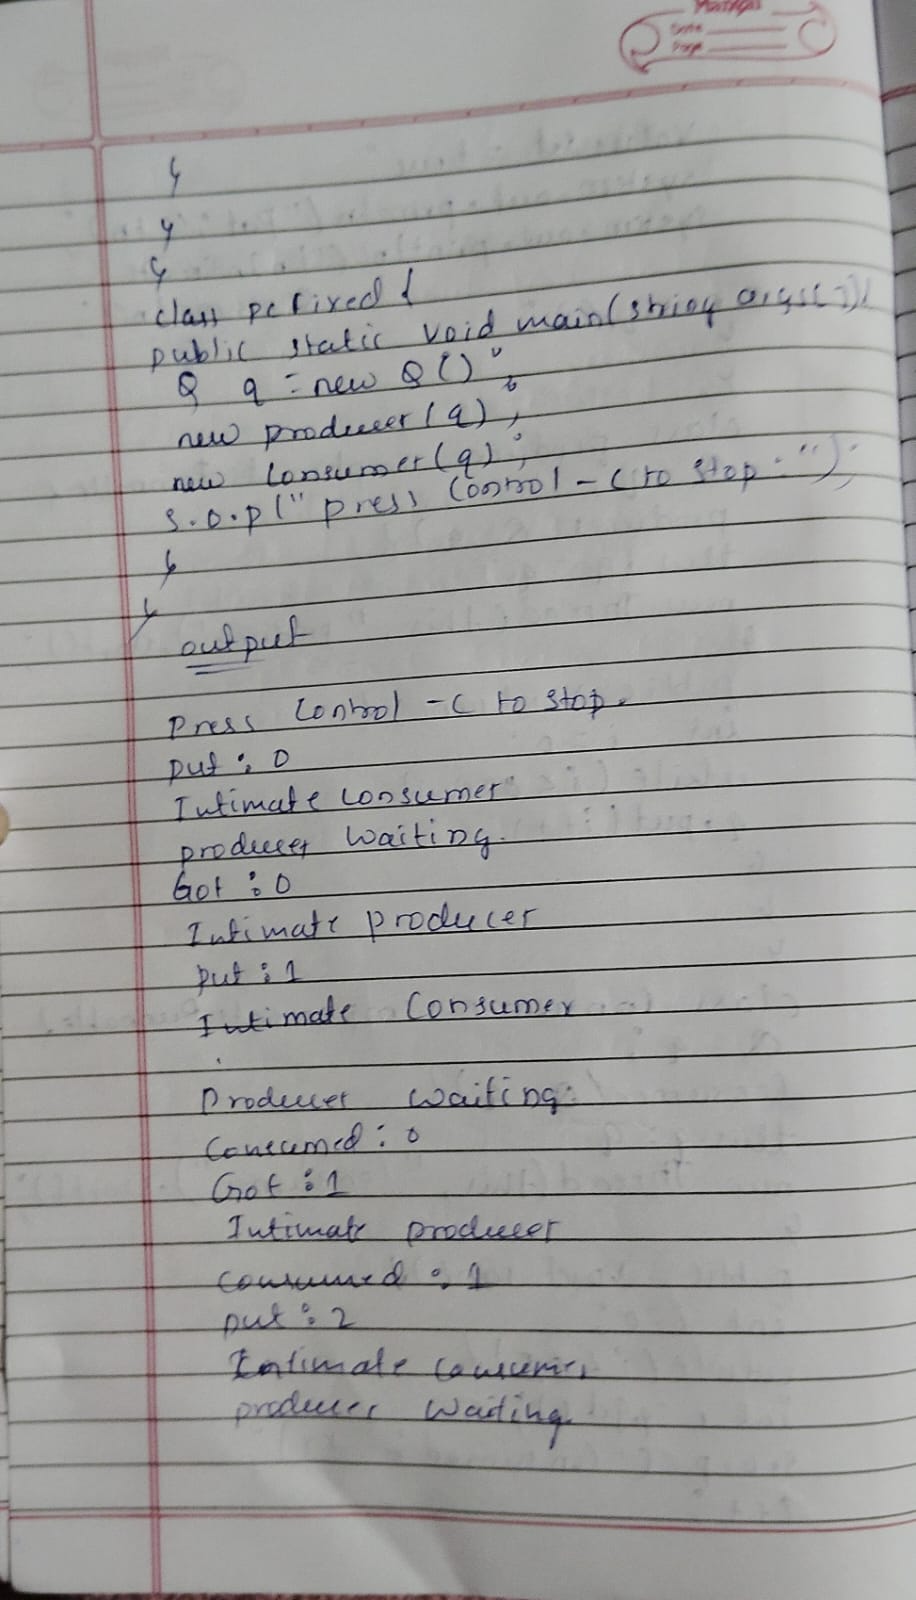 Date
Page
}
}
}
class pcfixed {
public static void main(string args[]){
Q q = new Q();
new producer(q);
new consumer(q);
S.O.P(" press Control - C to stop. ");
}
}
output
Press Control - C to stop.
put : 0
Intimate consumer
producer waiting.
Got : 0
Intimate producer
put : 1
Intimate Consumer
.
Producer waiting.
Consumed : 0
Got : 1
Intimate producer
consumed : 1
put : 2
Intimate consumer
producer waiting